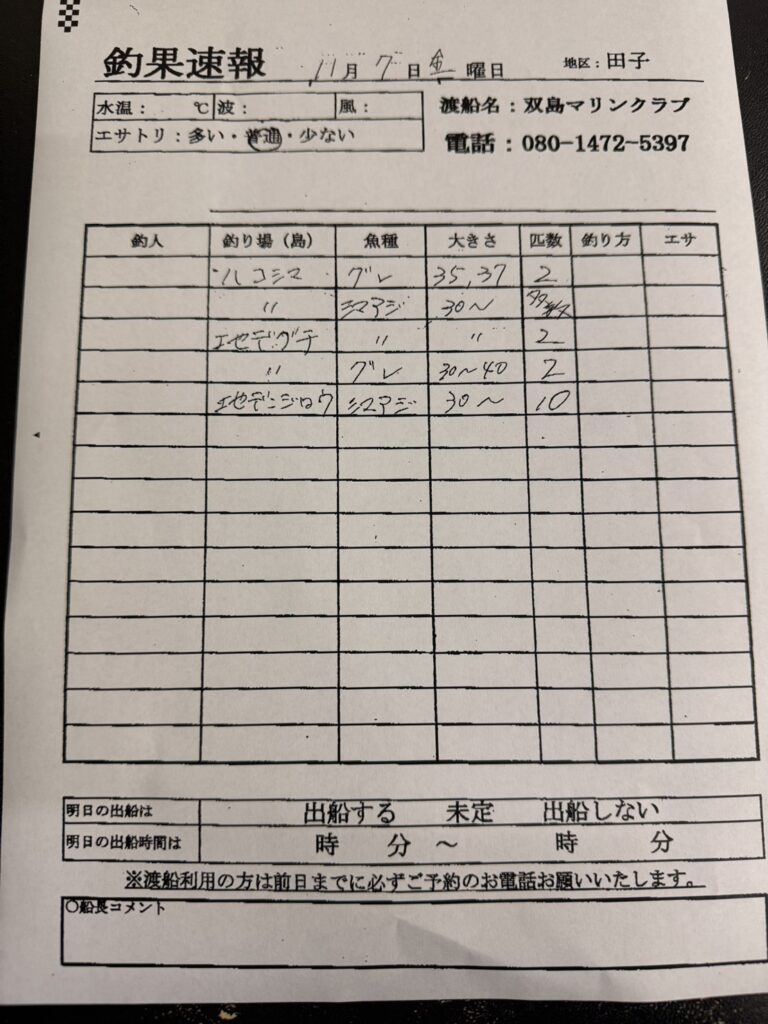 釣果速報 11月 7日 金 曜日 地区：田子
水温： ℃ 波： 風： 渡船名：双島マリンクラブ
エサトリ：多い・普通・少ない 電話：080-1472-5397
釣人 釣り場（島） 魚種 大きさ 匹数 釣り方 エサ
ハコシマ グレ 35,37 2
〃 シマアジ 30〜 多数
エセデグチ 〃 〃 2
〃 グレ 30〜40 2
エセデンジロウ シマアジ 30〜 10
明日の出船は 出船する 未定 出船しない
明日の出船時間は 時 分 〜 時 分
※渡船利用の方は前日までに必ずご予約のお電話お願いいたします。
○船長コメント